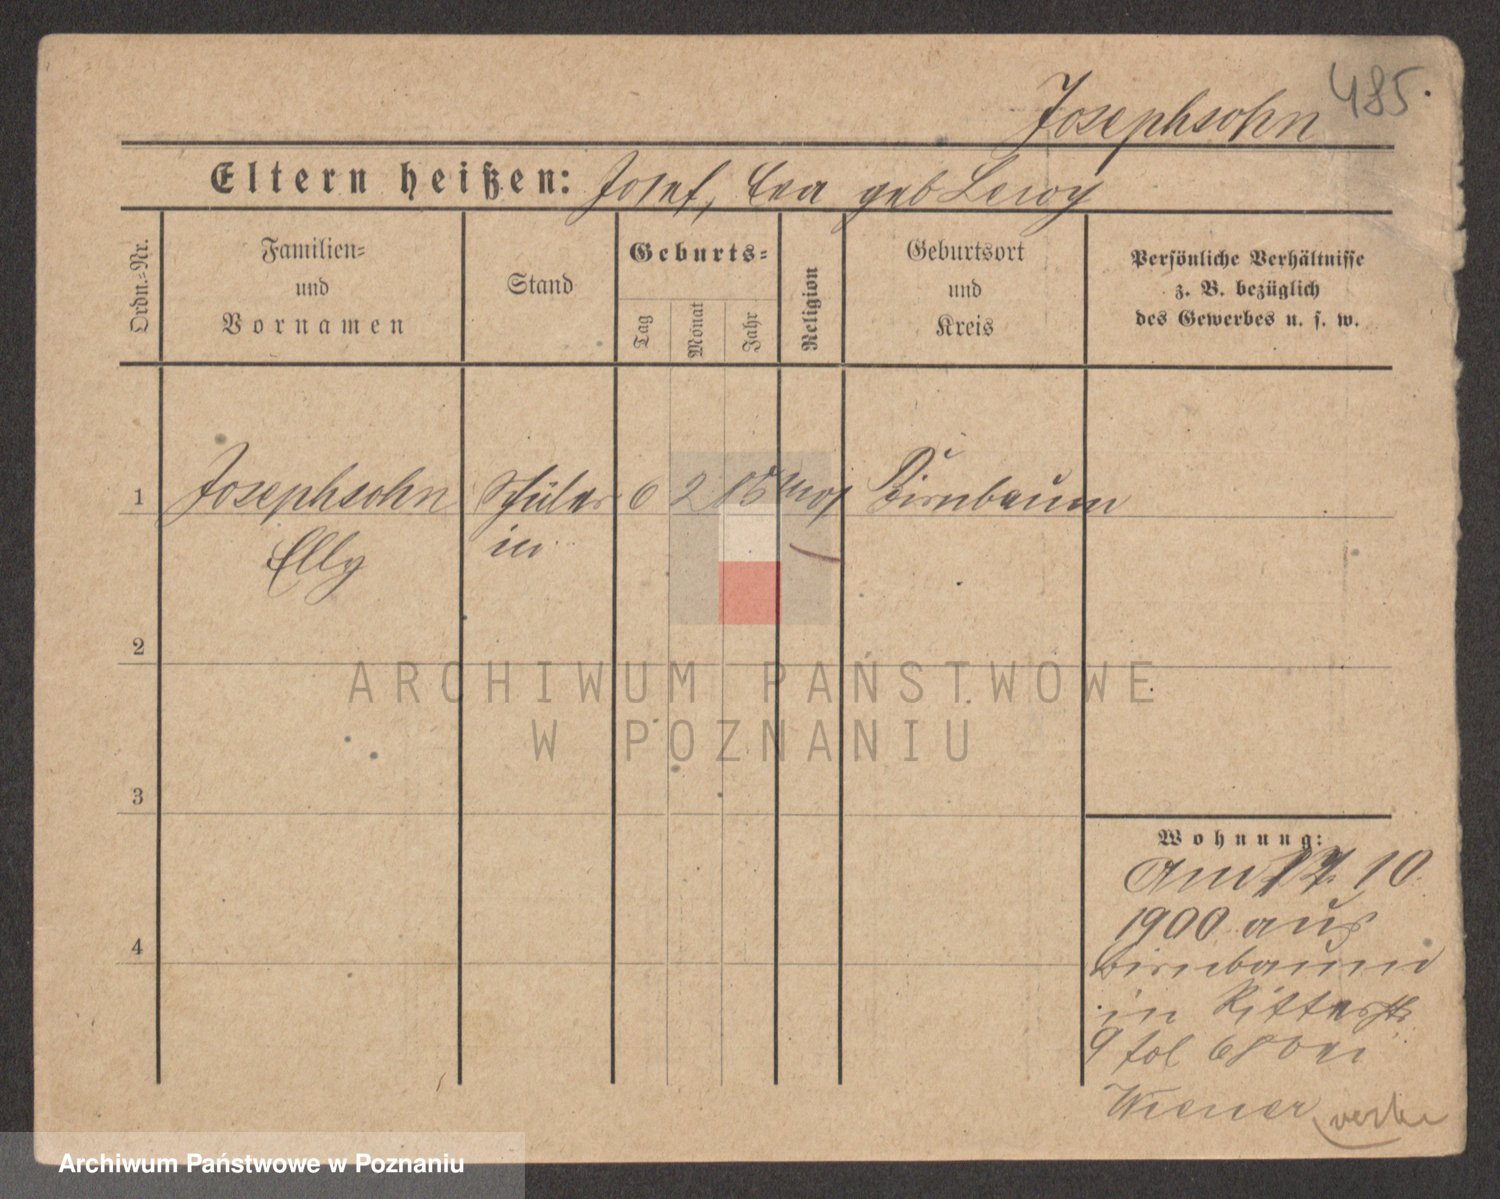 485.
Josephsohn
Eltern heißen: Josef, Eva geb Lewy
Ordn.=Nr.
Familien=
und
Vornamen
Stand
Geburts=
Tag
Monat
Jahr
Religion
Geburtsort
und
Kreis
Persönliche Verhältnisse
z. B. bezüglich
des Gewerbes u. s. w.
1 Josephsohn Schüler 6 2 85 mos Birnbaum
Elly in
2
3
4
Wohnung:
Am 17. 10
1900 aus
Birnbaum
in Ritterstr
9 fol 680 bei
Wiener
ARCHIWUM PAŃSTWOWE
W POZNANIU
Archiwum Państwowe w Poznaniu